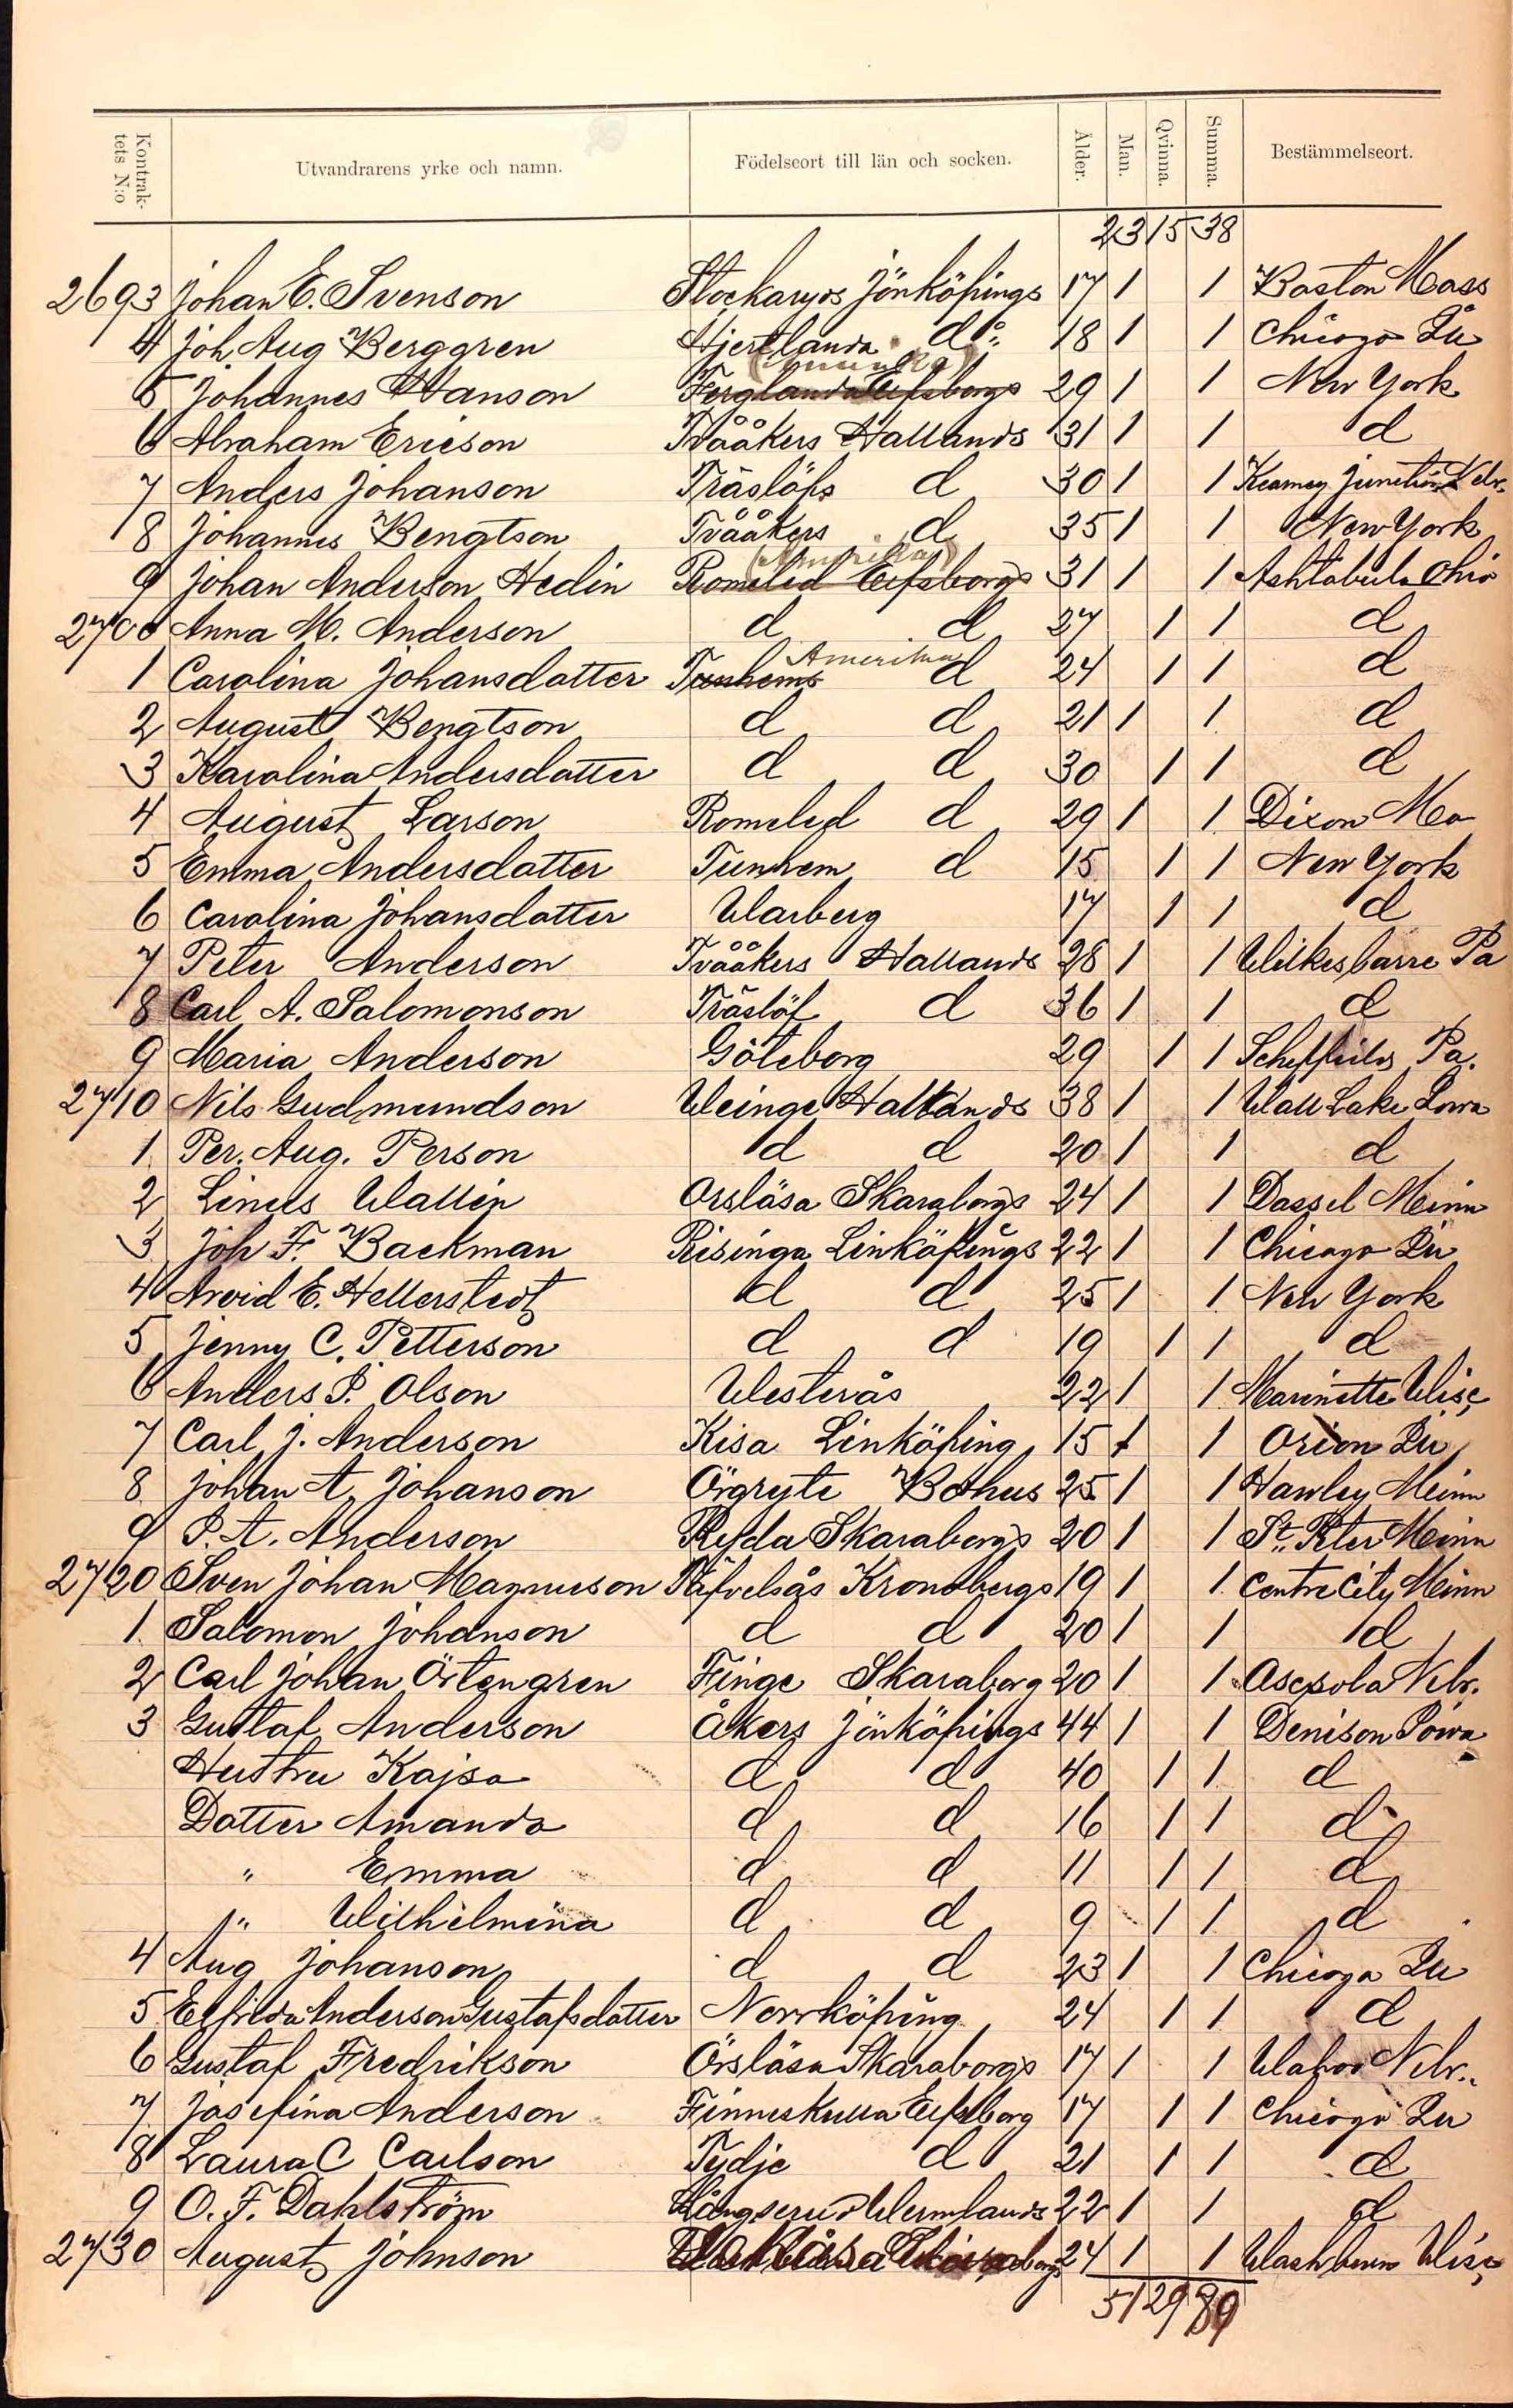 Kontraktets N:o Utvandrarens yrke och namn. Födelseort till län och socken. Ålder. Man. Qvinna. Summa. Bestämmelseort.
23 15 38
2693 Johan E. Svenson Stockaryds Jönköpings 17 1 1 Boston Mass
4 Joh Aug Berggren Hjertlanda do 18 1 1 Chicago Ill
(Amerika)
5 Johannes Hanson Ferglanda Elfsborgs 29 1 1 New York
6 Abraham Ericson Tvååkers Hallands 31 1 1 d
7 Anders Johanson Träslöfs d 30 1 1 Kearney Junction Nebr.
8 Johannes Bengtson Tvååkers d 35 1 1 New York
(Amerika)
9 Johan Anderson Hedin Romeled Elfsborgs 31 1 1 Ashtabula Ohio
2700 Anna M. Anderson d d 27 1 1 d
Amerika
1 Carolina Johansdatter Tunhems d 24 1 1 d
2 August Bengtson d d 21 1 1 d
3 Karolina Andersdatter d d 30 1 1 d
4 August Larson Romeled d 29 1 1 Dixon Mo
5 Emma Andersdatter Tunhem d 15 1 1 New York
6 Carolina Johansdatter Warberg 17 1 1 d
7 Peter Anderson Tvååkers Hallands 28 1 1 Wilkesbarre Pa
8 Carl A. Salomonson Träslöf d 36 1 1 d
9 Maria Anderson Göteborg 29 1 1 Scheffield Pa.
2710 Nils Gudmundson Weinge Hallands 38 1 1 Wall Lake Iowa
1 Per. Aug. Person d d 20 1 1 d
2 Linus Wallin Orslösa Skaraborgs 24 1 1 Dassel Minn
3 Joh F. Backman Risinga Linköpings 22 1 1 Chicago Ill
4 Arvid E. Hellerstedt d d 25 1 1 New York
5 Jenny C. Petterson d d 19 1 1 d
6 Anders P. Olson Westerås 22 1 1 Marinette Wisc
7 Carl J. Anderson Kisa Linköping 15 1 1 Orion Ill
8 Johan A. Johanson Örgryte Bohus 25 1 1 Hawley Minn
9 P. A. Anderson Ryda Skaraborgs 20 1 1 St. Peter Minn
2720 Sven Johan Magnuson Täfvelsås Kronobergs 19 1 1 Centre City Minn
1 Salomon Johanson d d 20 1 1 d
2 Carl Johan Örtengren Finge Skaraborg 20 1 1 Osceola Nebr.
3 Gustaf Anderson Åkers Jönköpings 44 1 1 Denison Iowa
Hustru Kajsa d d 40 1 1 d
Dotter Amanda d d 16 1 1 d
" Emma d d 11 1 1 d
" Wilhelmina d d 9 1 1 d
4 Aug Johanson d d 23 1 1 Chicago Ill
5 Elfrida Anderson Gustafsdatter Norrköping 24 1 1 d
6 Gustaf Fredrikson Örslösa Skaraborgs 17 1 1 Wahoo Nebr.
7 Josefina Anderson Finnekulla Elfsborg 17 1 1 Chicago Ill
8 Laura C Carlson Tydje d 21 1 1 d
9 O. F. Dahlström Långserud Wermlands 22 1 1 d
2730 August Johnson 24 1 1 Washburn Wisc
51 29 80